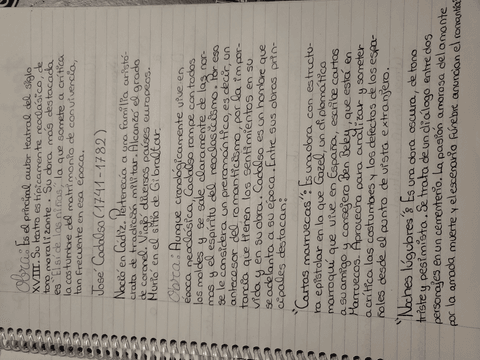 Obra: Es el principal autor teatral del siglo
XVIII. Su teatro es típicamente neoclásico, de
tono moralizante. Su obra más destacada
es El sí de las niñas, en la que somete a crítica
la costumbre del matrimonio de convivencia,
tan frecuente en esa época.
José Cadalso (1741-1782)
Nació en Cádiz. Pertenecía a una familia aristó-
crata de tradición militar. Alcanzó el grado
de coronel. Viajó diversos países europeos.
Murió en el sitio de Gibraltar.
Obra: Aunque cronológicamente vive en
época neoclásica, Cadalso rompe con todos
los moldes y se sale claramente de las nor-
mas y el espíritu del neoclasicismo. Por eso
se le considera un prerromántico, es decir, un
antecesor del romanticismo, por la impor-
tancia que tienen los sentimientos en su
vida y en su obra. Cadalso es un hombre que
se adelanta a su época. Entre sus obras prin-
cipales destacan:
"Cartas marruecas": Es una obra con estructu-
ra epistolar en la que Gazel, un diplomático
marroquí que vive en España, escribe cartas
a su amigo y consejero Ben Beley, que está en
Marruecos. Aprovecha para analizar y someter
a crítica las costumbres y los defectos de los espa-
ñoles desde el punto de vista extranjero.
"Noches lúgubres": Es una obra oscura, de tono
triste y pesimista. Se trata de un diálogo entre dos
personajes en un cementerio. La pasión amorosa del amante
por la amada muerta y el escenario fúnebre anuncian el